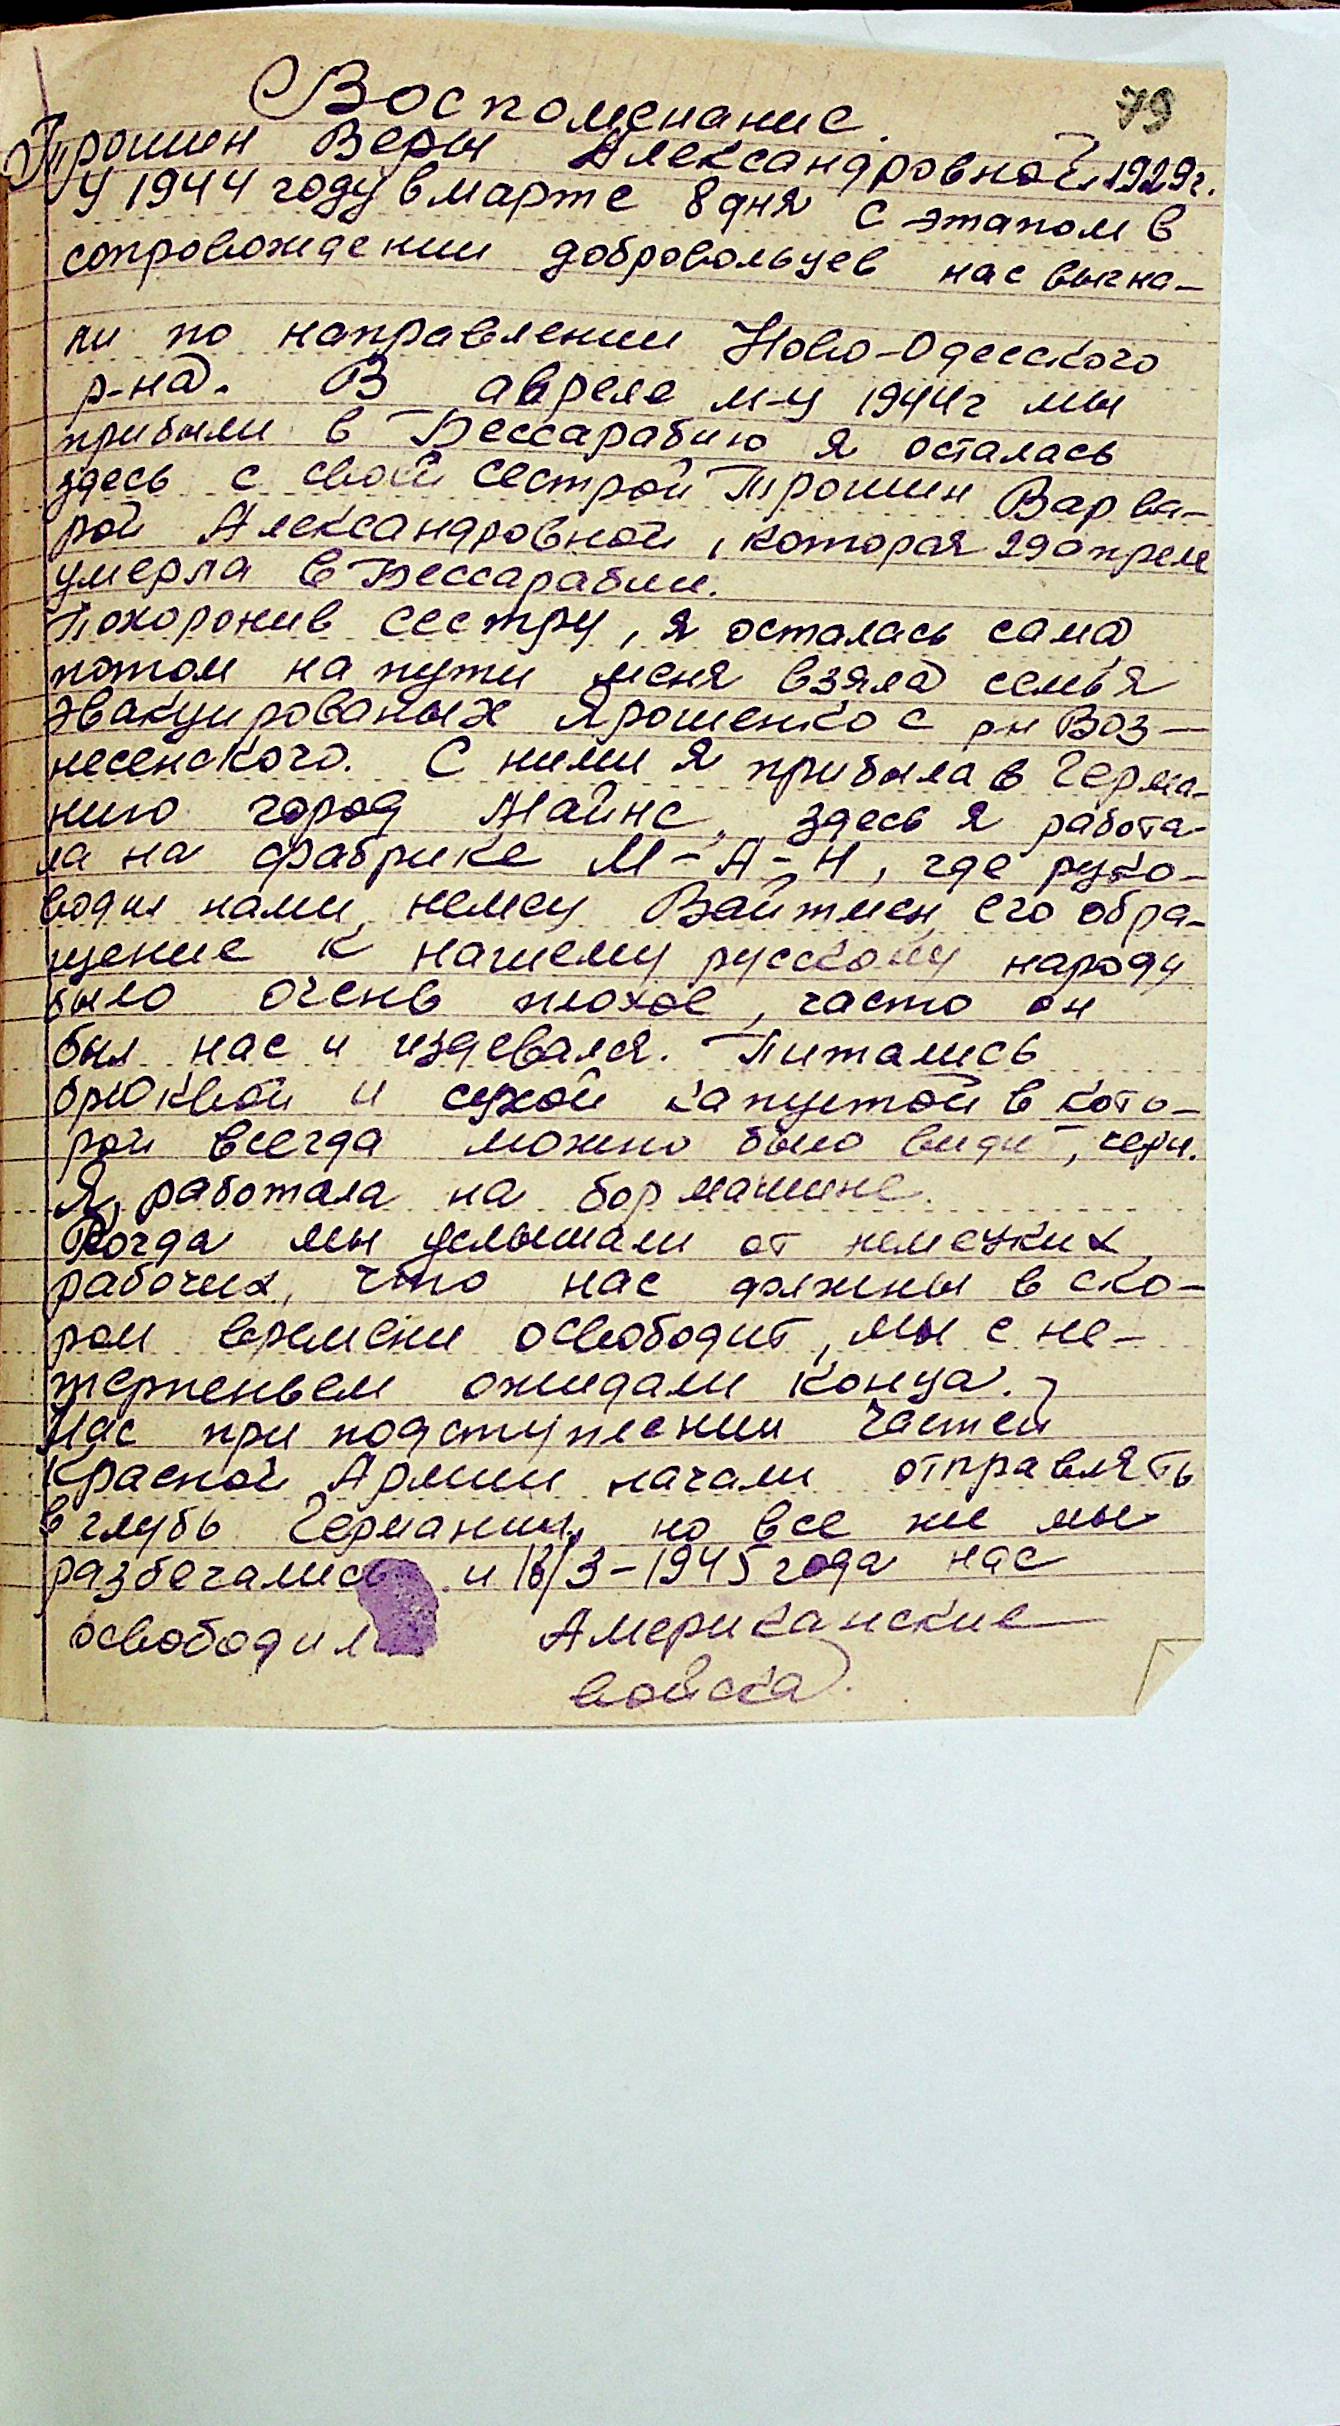 79
Воспоменание.
Трошин Веры Александровной 1929г.
У 1944 году в марте 8 дня с этапом в
сопровождении добровольцев нас выгна-
ли по направлении Ново-Одесского
р-на. В апреле м-ц 1944г мы
прибыли в Бессарабию я осталась
здесь с свой сестрой Трошин Варва-
рой Александровной, которая 29 апреля
умерла в Бессарабии.
Похоронив сестру, я осталась сама
потом на пути меня взяла семья
эвакуированых Ярошенко с р-н Воз-
несенского. С ними я прибыла в Герма-
нию город Майнс, здесь я работа-
ла на фабрике М-А-Н, где руко-
водил нами немец Вайтмен, его обра-
щение к нашему русскому народу
было очень плохое, часто он
бил нас и издевался. Питались
брюквой и сухой капустой в кото-
рой всегда можно было видит, черв.
Я работала на бор машине.
Когда мы услышали от немецких
рабочих, что нас должны в ско-
ром времени освободит, мы с не-
терпеньем ожидали конца.
Нас при подступлении частей
Красной Армии начали отправлять
в глубь Германии, но все же мы
разбегались и /3-1945 года нас
освободили Американские
войска.